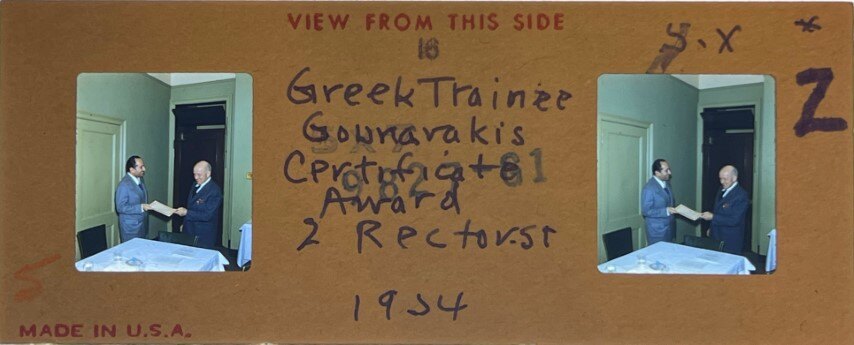 VIEW FROM THIS SIDE
16
S.X *
Z
Greek Trainee
Gounarakis
Certificate
Award
2 Rector.st
1954
5
MADE IN U.S.A.